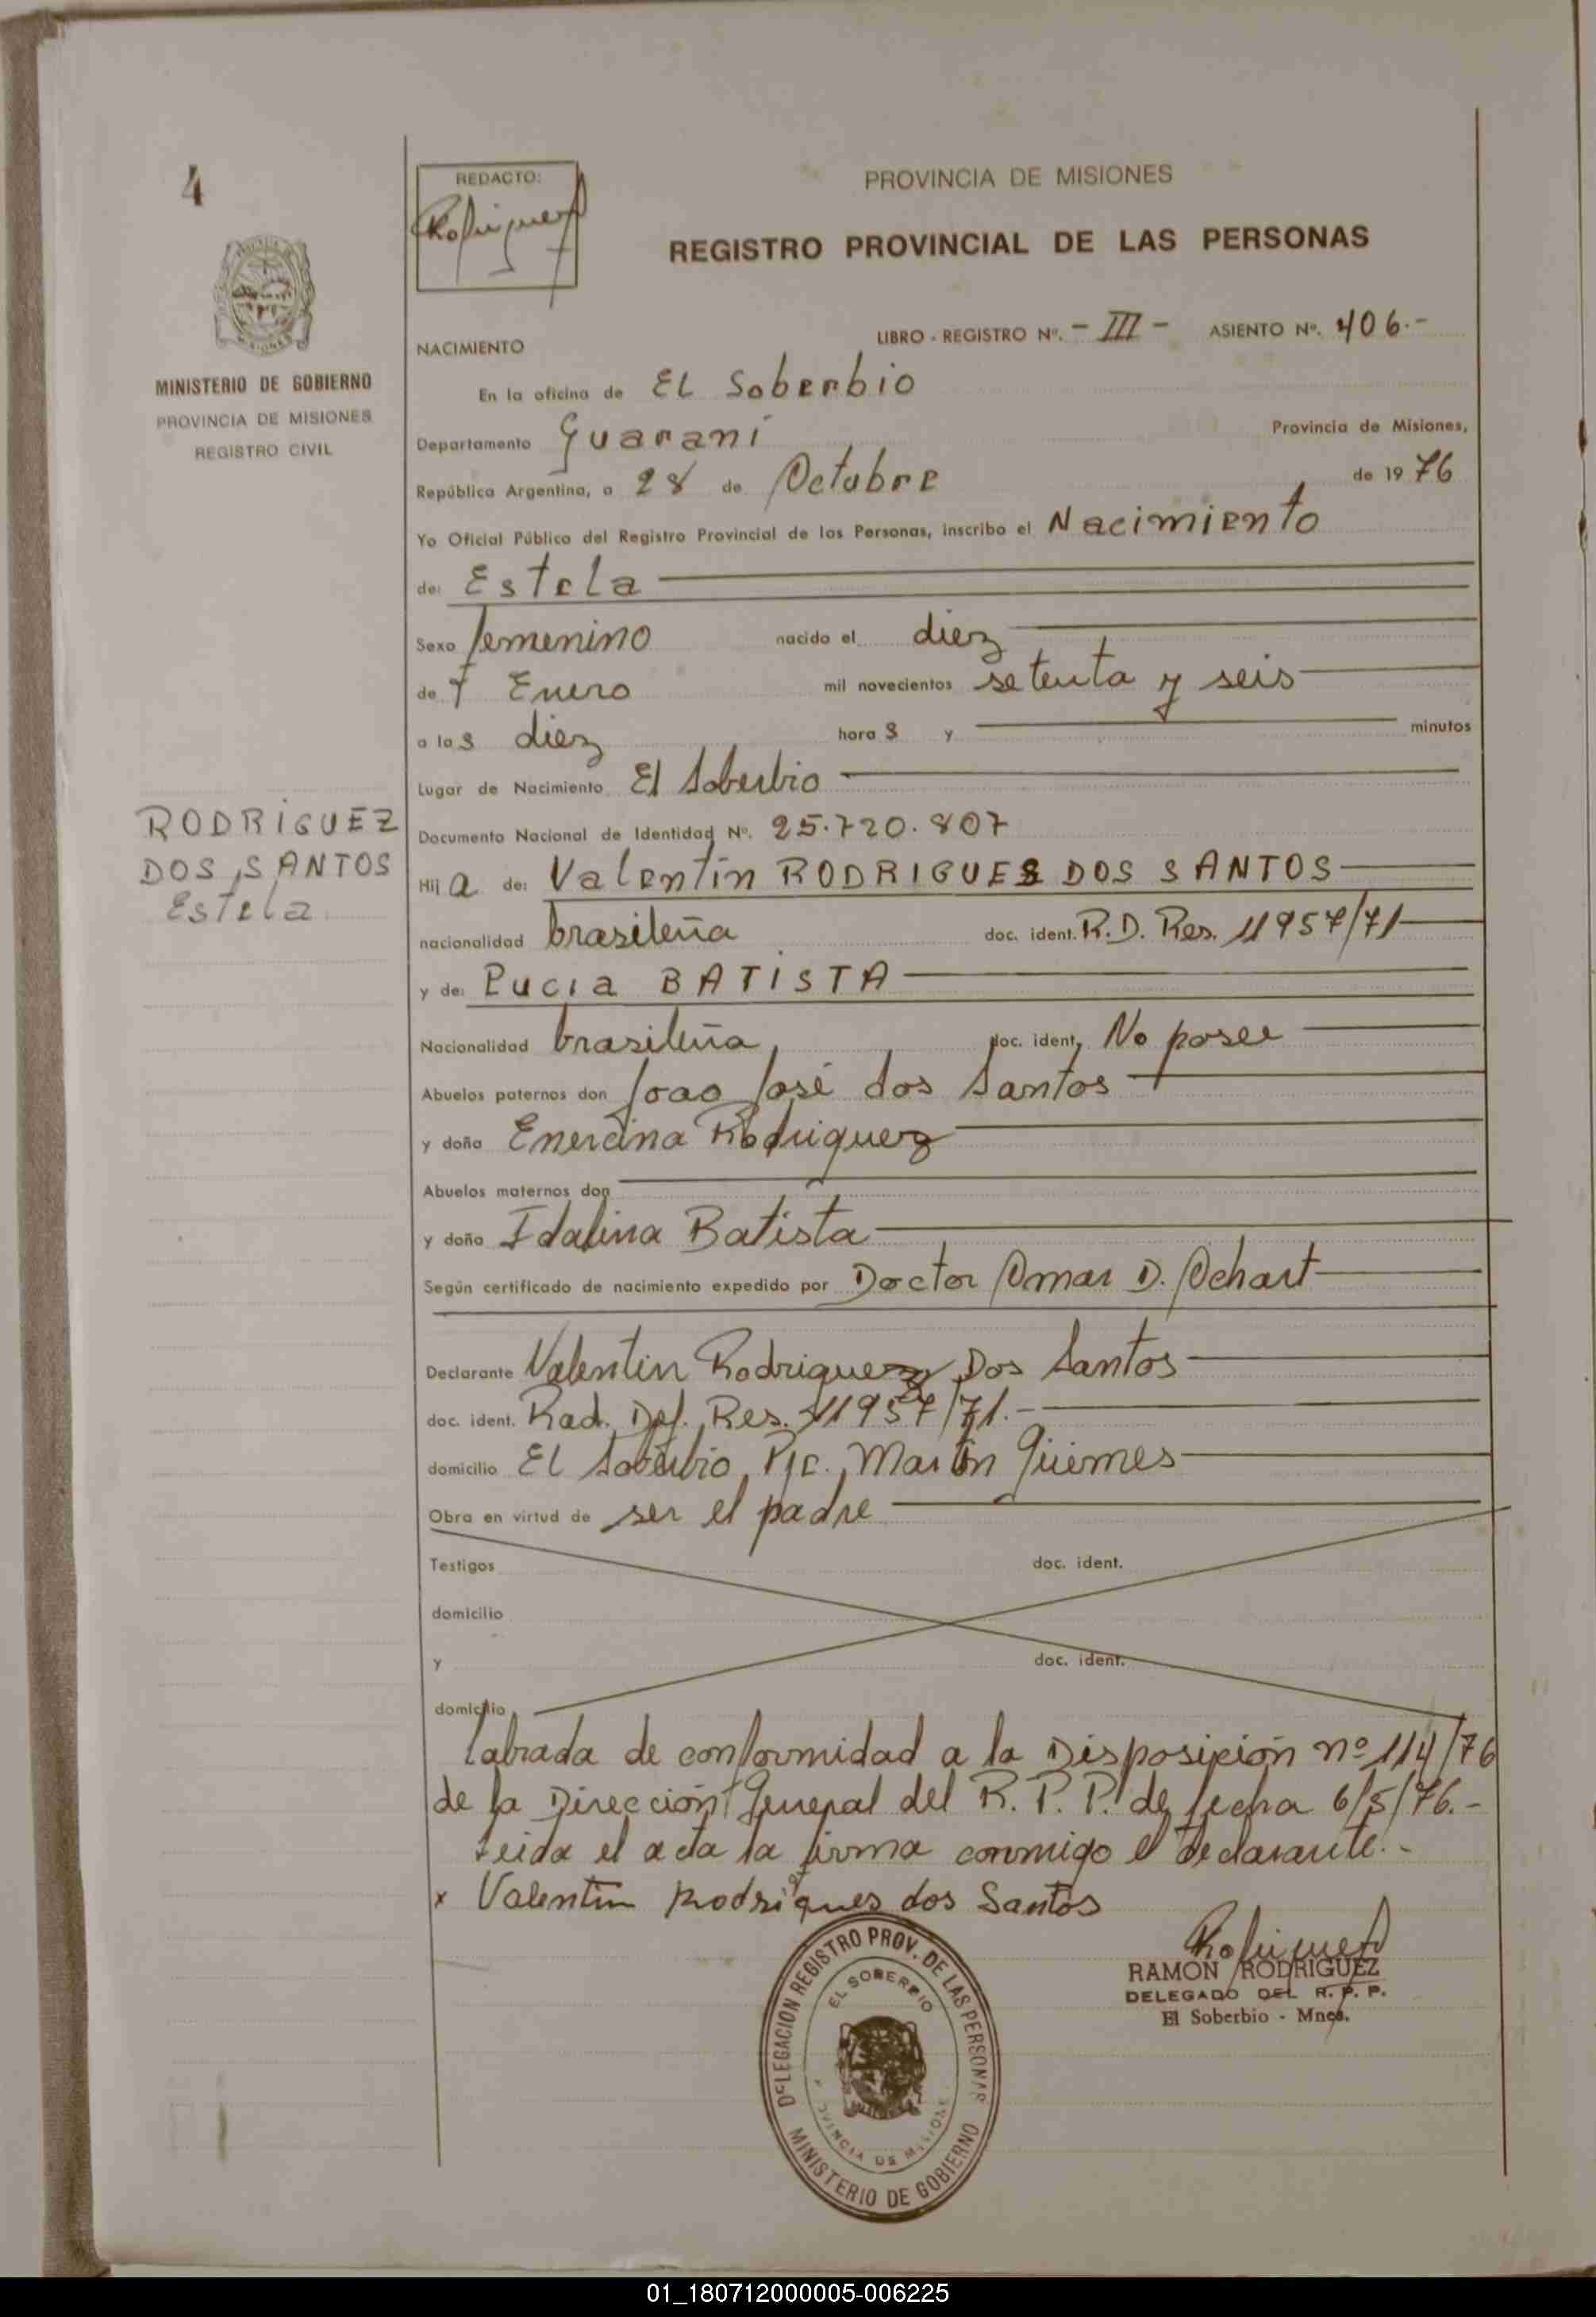 4
REDACTO:
PROVINCIA DE MISIONES
REGISTRO PROVINCIAL DE LAS PERSONAS
MINISTERIO DE GOBIERNO
PROVINCIA DE MISIONES
REGISTRO CIVIL
LIBRO - REGISTRO Nº. - III - ASIENTO Nº. 406.-
NACIMIENTO
En la oficina de El Soberbio
Departamento Guaraní Provincia de Misiones,
República Argentina, a 28 de Octubre de 1976
Yo Oficial Público del Registro Provincial de las Personas, inscribo el Nacimiento
de: Estela
Sexo femenino nacido el diez
de Enero mil novecientos setenta y seis
a las diez horas y minutos
Lugar de Nacimiento El Soberbio
RODRIGUEZ
DOS SANTOS
Estela
Documento Nacional de Identidad Nº. 25.720.807
Hija de: Valentín RODRIGUES DOS SANTOS
nacionalidad brasileña doc. ident. R.D. Res. 11957/71
y de: Lucia BATISTA
Nacionalidad brasileña doc. ident. No posee
Abuelos paternos don Joao José dos Santos
y doña Rodriguez
Abuelos maternos don
y doña Idalina Batista
Según certificado de nacimiento expedido por Doctor Omar D. Ochart
Declarante Valentin Rodriguez Dos Santos
doc. ident. Rad. Def. Res. 11957/71.-
domicilio El Soberbio, Pje. Martín Güemes
Obra en virtud de ser el padre
Testigos doc. ident.
domicilio
y doc. ident.
domicilio
Labrada de conformidad a la Disposición nº 114/76
de la Dirección General del R.P.P. de fecha 6/5/76.-
Leida el acta la firma conmigo el declarante.-
x Valentin Rodrigues dos Santos
RAMON RODRIGUEZ
DELEGADO DEL R. P. P.
El Soberbio - Mnes.
DELEGACION REGISTRO PROV. DE LAS PERSONAS
EL SOBERBIO
PROVINCIA DE MISIONES
MINISTERIO DE GOBIERNO
01_180712000005-006225